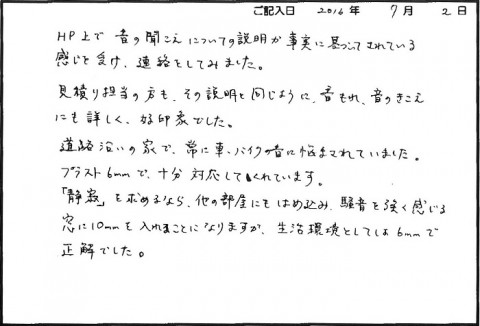 ご記入日 2016年 7月 2日
HP上で 音の聞こえについての説明が事実に基づいてされている
感じを受け、連絡をしてみました。
見積り担当の方も、その説明と同じように、音もれ、音のきこえ
にも詳しく、好印象でした。
道路沿いの家で、常に車、バイクの音に悩まされていました。
プラスト6mmで、十分対応してくれています。
「静寂」を求めるなら、他の部屋にもはめ込み、騒音を強く感じる
窓に10mmを入れることになりますが、生活環境としては6mmで
正解でした。